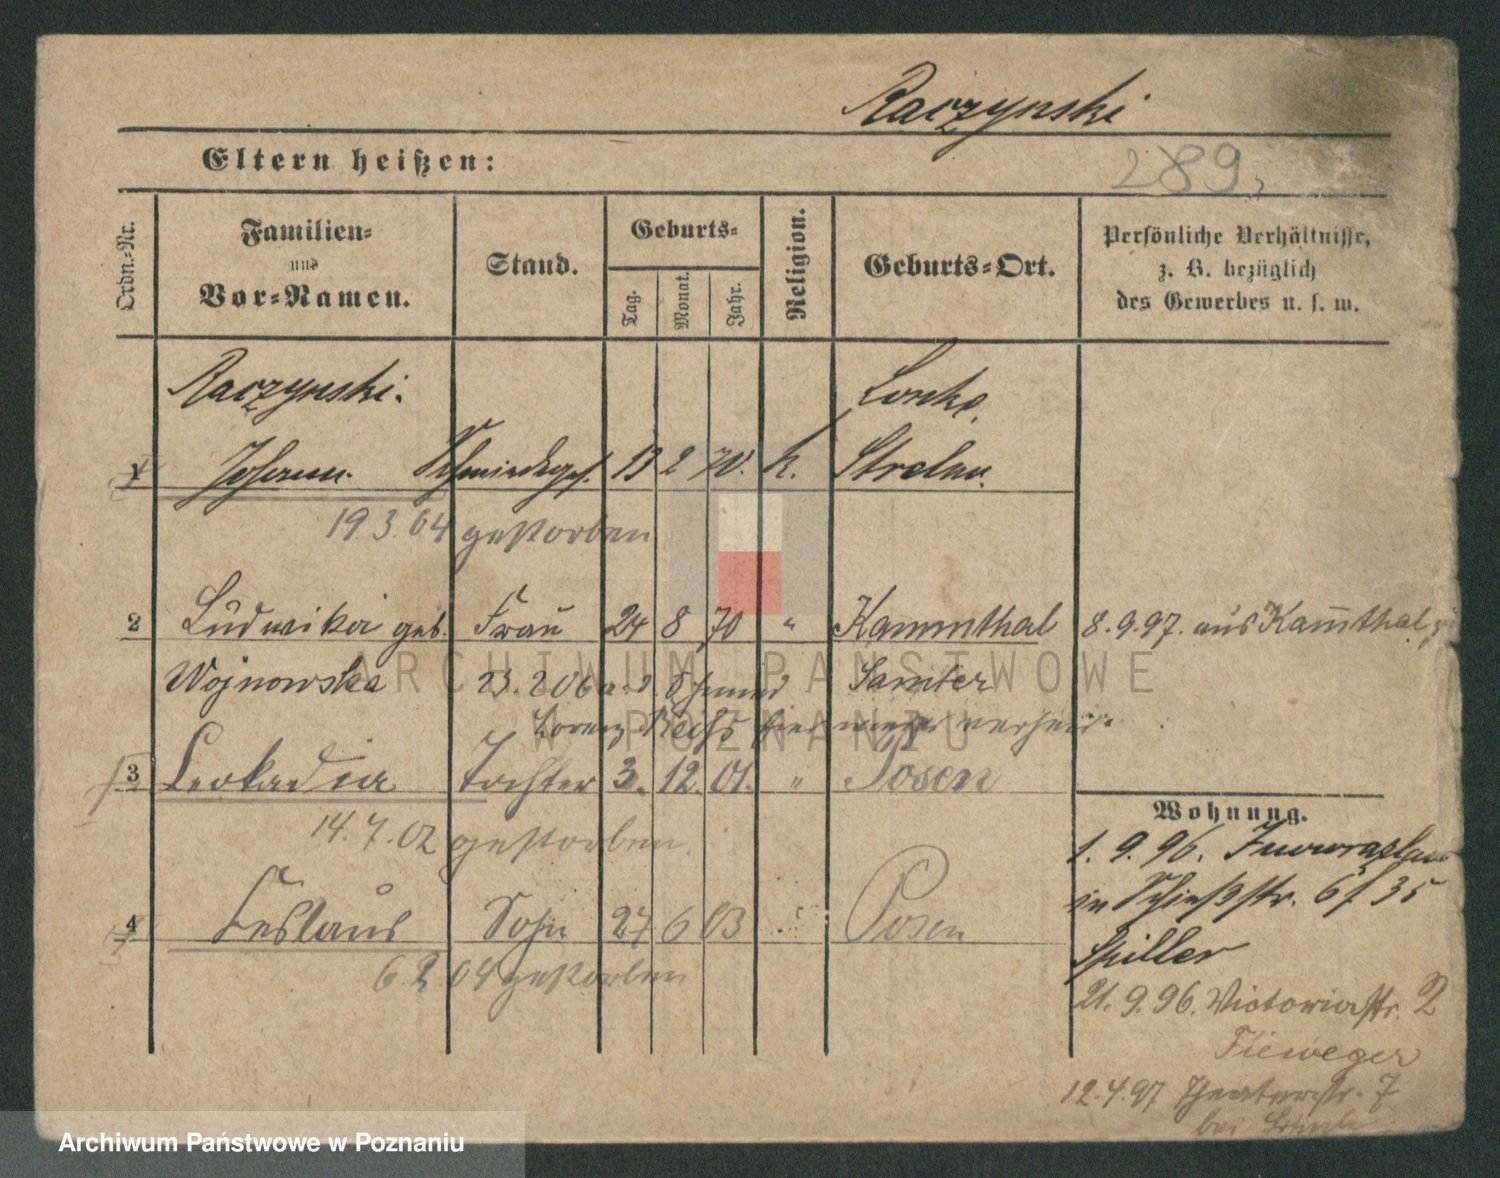 Raczynski
Eltern heißen:
289,
Ordn.-Nr.
Familien-
und
Vor-Namen.
Stand.
Geburts-
Tag.
Monat.
Jahr.
Religion.
Geburts-Ort.
Persönliche Verhältnisse,
z. B. bezüglich
des Gewerbes u. s. w.
Raczynski.
1 Johann. Schmiedeges. 2 70. k. Strelno.
19.3.04 gestorben
2 Ludwika geb. Frau 24 8 70 " Kammthal 8.9.97. aus Kam̅thal
Wojnowska 23.2.06 Samter
Lorenz hier wieder verheir.
3 Leokadia Tochter 3. 12. 01. " Posen
14.7.02 gestorben.
4 Ceslaus Sohn 27 6 03 Posen
6 2 04 gestorben
Wohnung.
1. 9. 96. Inowrazlaw
in Schießstr. 6 f 35
Spiller
21. 9. 96. Victoriastr. 2
Tieweger
12.4.97 Theaterstr. 7
bei
ARCHIWUM PAŃSTWOWE
W POZNANIU
Archiwum Państwowe w Poznaniu